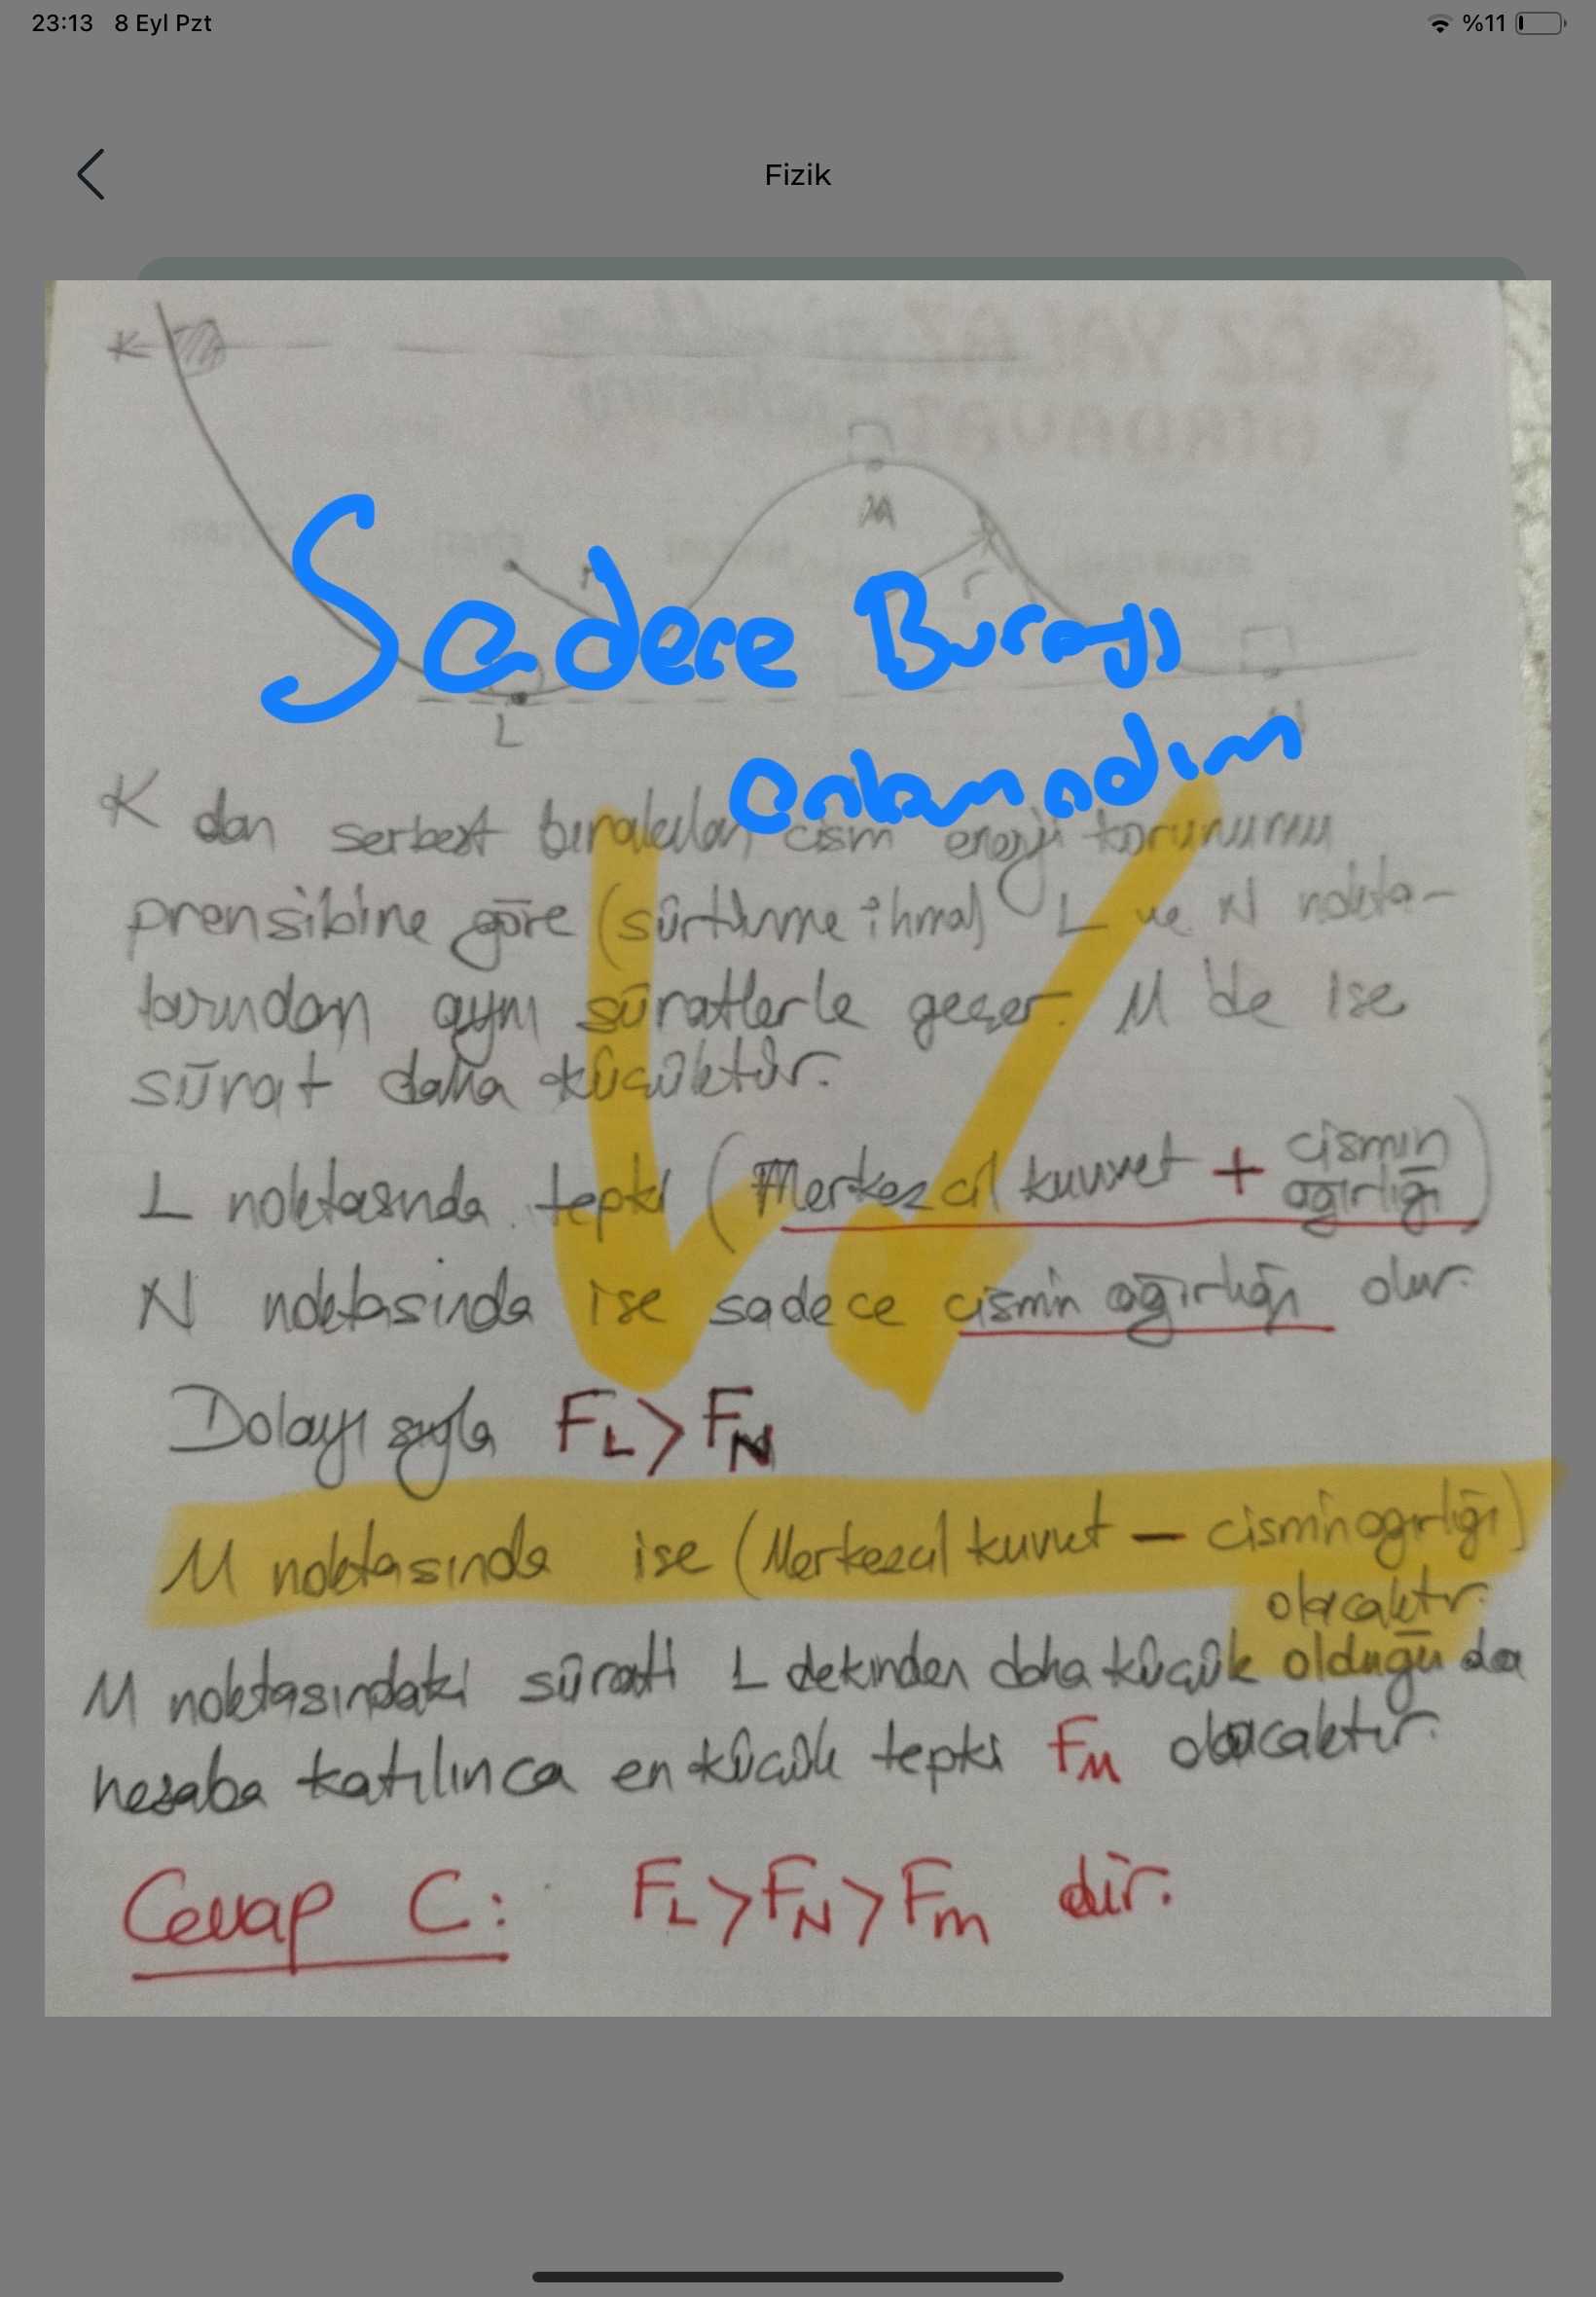 23:13 8 Eyl Pzt %11
Fizik
K
M
r
r
Sadece Burayı
anlamadım
L
N
K dan serbest bırakılan cism enerji korunumu
prensibine göre (sürtünme ihmal) L ve N nokta-
larından aynı süratlerle geçer. M de ise
sürat daha küçüktür.
L noktasında tepki (Merkezcil kuvvet + cismin ağırlığı)
N noktasında ise sadece cismin ağırlığı olur.
Dolayısıyla FL > FN
M noktasında ise (Merkezcil kuvvet − cismin ağırlığı)
olacaktır.
M noktasındaki sürati L dekinden daha küçük olduğu da
hesaba katılınca en küçük tepki FM olacaktır.
Cevap C: FL > FN > Fm dir.